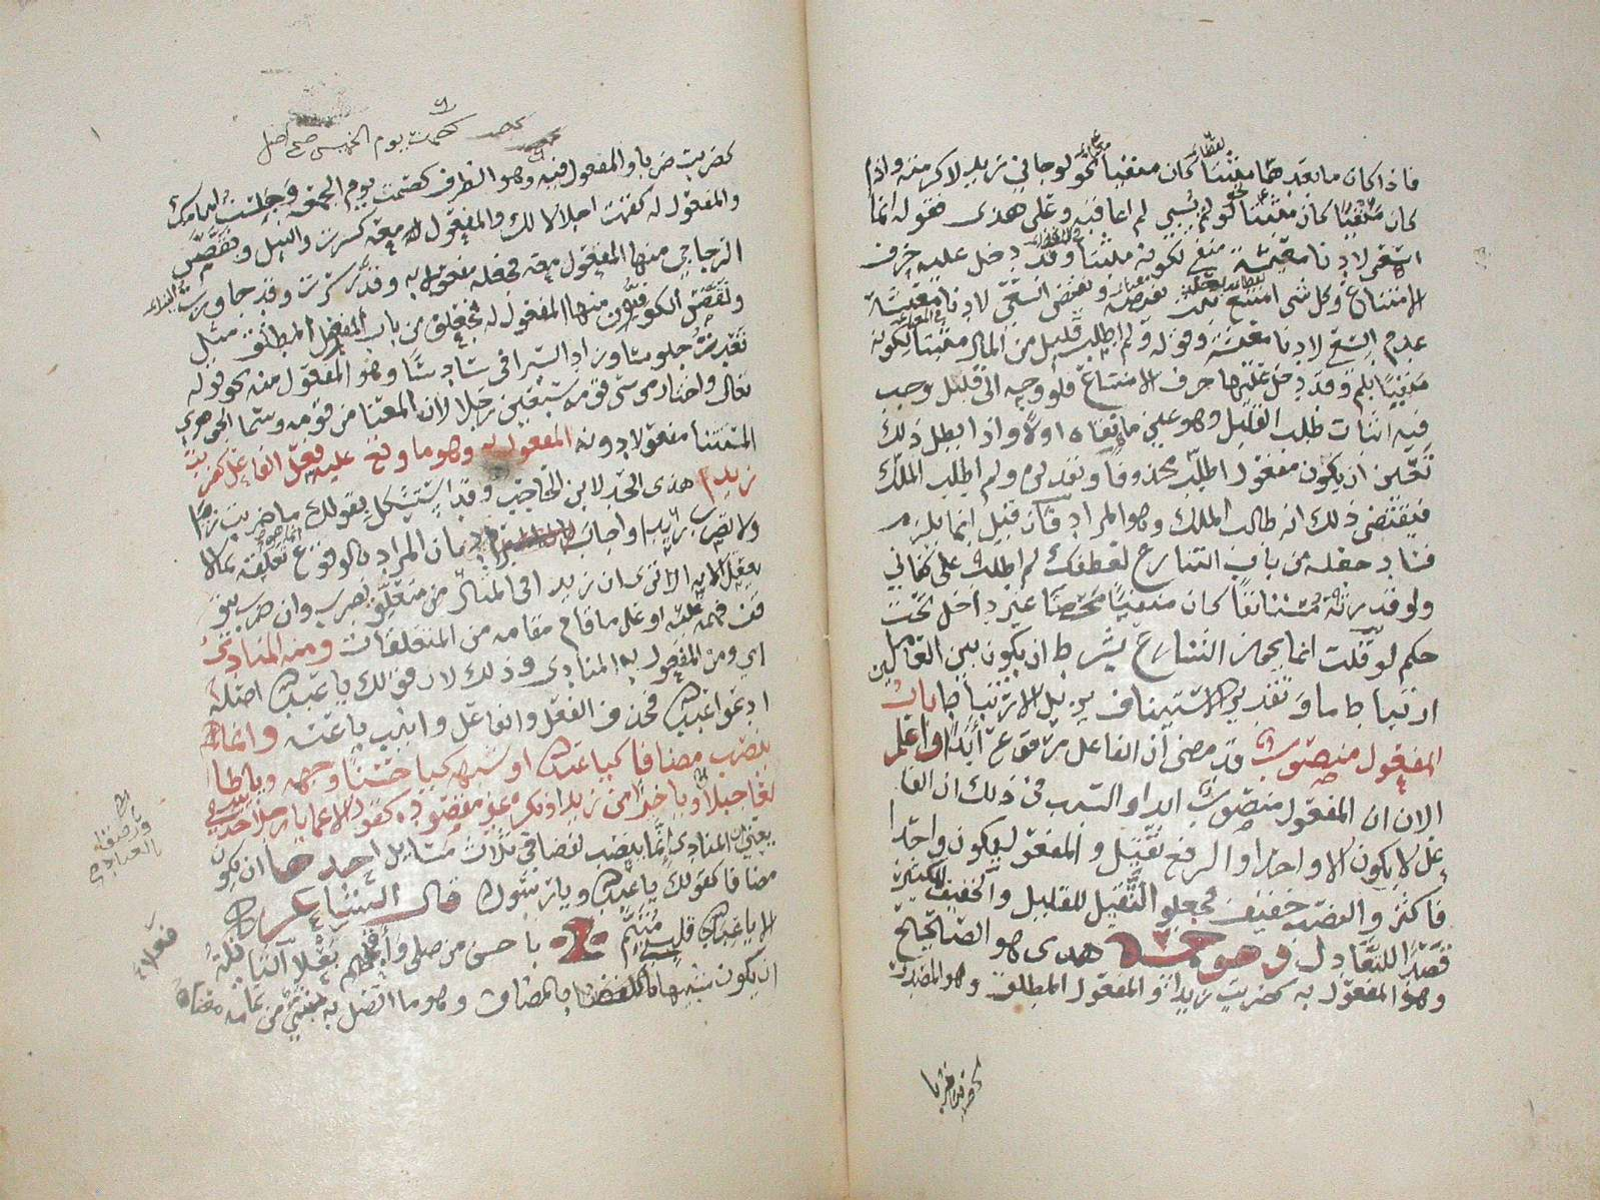 فاذا كان ما بعدهما مثبتا كان منفيا نحو لو جاني زيد لاكرمته واذا
كان منفيا كان مثبتا نحو لو لم يسيي لم اعاقبه وعلى هذى فقوله انما
اسعى لادنا معيشة منفي لكونه مثبتا وقد دخل عليه حرف
الامتناع وكل شي امتنع ثبت نقيضه ونقيض السعي لادنا معيشة
عدم السعي لادنا معيشة وقوله ولم اطلب قليل من المال مثبتا لكونه
منفيا بلم وقد دخل عليها حرف الامتناع فلو وجه الى قليل وجب
فيه اثبات طلب القليل وهو عين ما نفاه اولا واذا بطل ذلك
تعين ان يكون مفعول اطلب محذوفا وتقديره ولم اطلب الملك
فيقتضي ذلك انه طالب الملك وهو المراد فان قيل انما يلزم
فساد جعله من باب التنازع لعطفك لم اطلب على كفاني
ولو قدرته مستانفا كان منفيا محضا غير داخل تحت
حكم لو قلت انما يجوز التنازع بشرط ان يكون بين العاملين
ارتباط ما وتقدير الاستيناف يزيل الارتباط باب
المفعول منصوب قد مضى ان الفاعل مرفوع ابدا واعلم
الان ان المفعول منصوب ابدا والسبب في ذلك ان الفا
عل لا يكون الا واحدا والرفع ثقيل والمفعول يكون واحدا
فاكثر والنصب خفيف فجعلوا الثقيل للقليل والخفيف للكثير
قصدا للتعادل وهو خمسة هذى هو الصحيح
وهو المفعول به كضربت زيدا والمفعول المطلق وهو المصدر
كضربت ضربا
كصمت يوم الخميس صح اصل
كضربت ضربا والمفعول فيه وهو الظرف كصمت يوم الجمعة وجلست امامك
والمفعول له كقمت اجلالا لك والمفعول معه كسرت والنيل ونقص
الزجاجي منها المفعول معه فجعله مفعول به وقدر سرت وقد جاوزت النيل
ونقص الكوفيون منها المفعول له فجعلوه من باب المفعول المطلق مثل
قعدت جلوسا وزاد السيرافي سادسا وهو المفعول منه نحو قوله
تعالى واختار موسى قومه سبعين رجلا لان المعنا من قومه وسما الجوهري
المستثنا مفعولا دونه المفعول به وهو ما وقع عليه فعل الفاعل كضربت
زيدا هذى الحد لابن الحاجب وقد استشكل بقولك ما ضربت زيدا
ولا تضرب زيدا واجاب بان المراد بالوقوع انما هو تعلقه بما لا
يعقل الا به الا ترى ان زيدا في المثال من متعلق بضرب وان ضرب يتو
قف فهمه عليه او على ما قام مقامه من المتعلقات ومنه المنادى
اي ومن المفعول به المنادى وذلك لان قولك يا عبدالله اصله
ادعوا عبدالله فحذف الفعل والفاعل وانيب يا عنه وانما
ينصب مضافا كيا عبدالله او شبهه كيا حسنا وجهه ويا طا
لعا جبلا ويا خيرا من زيد او نكرة غير مقصوده كقول الاعما يا رجلا خذ بيدي
يعني ان المنادى انما ينصب لفضا في ثلاث مسايل احدها ان يكون
مضافا كقولك يا عبدالله ويا رسول الله قال الشاعر
الا يا عباد الله قلبي متيم باحسن من صلى واقبحهم بعلا الثانية
ان يكون شبيها بالمضاف وهو ما اتصل به شيئ من تمام معناه
فعلا